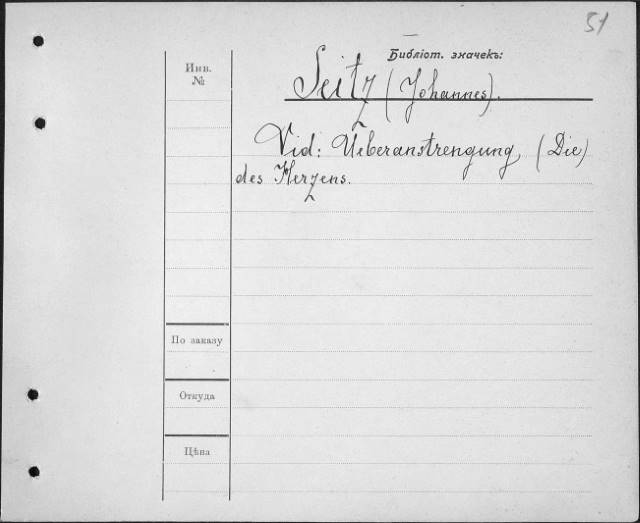 51
Библіот. значекъ:
Инв.
№
Seitz (Johannes).
Vid: Ueberanstrengung, (Die)
des Herzens.
По заказу
Откуда
Цѣна